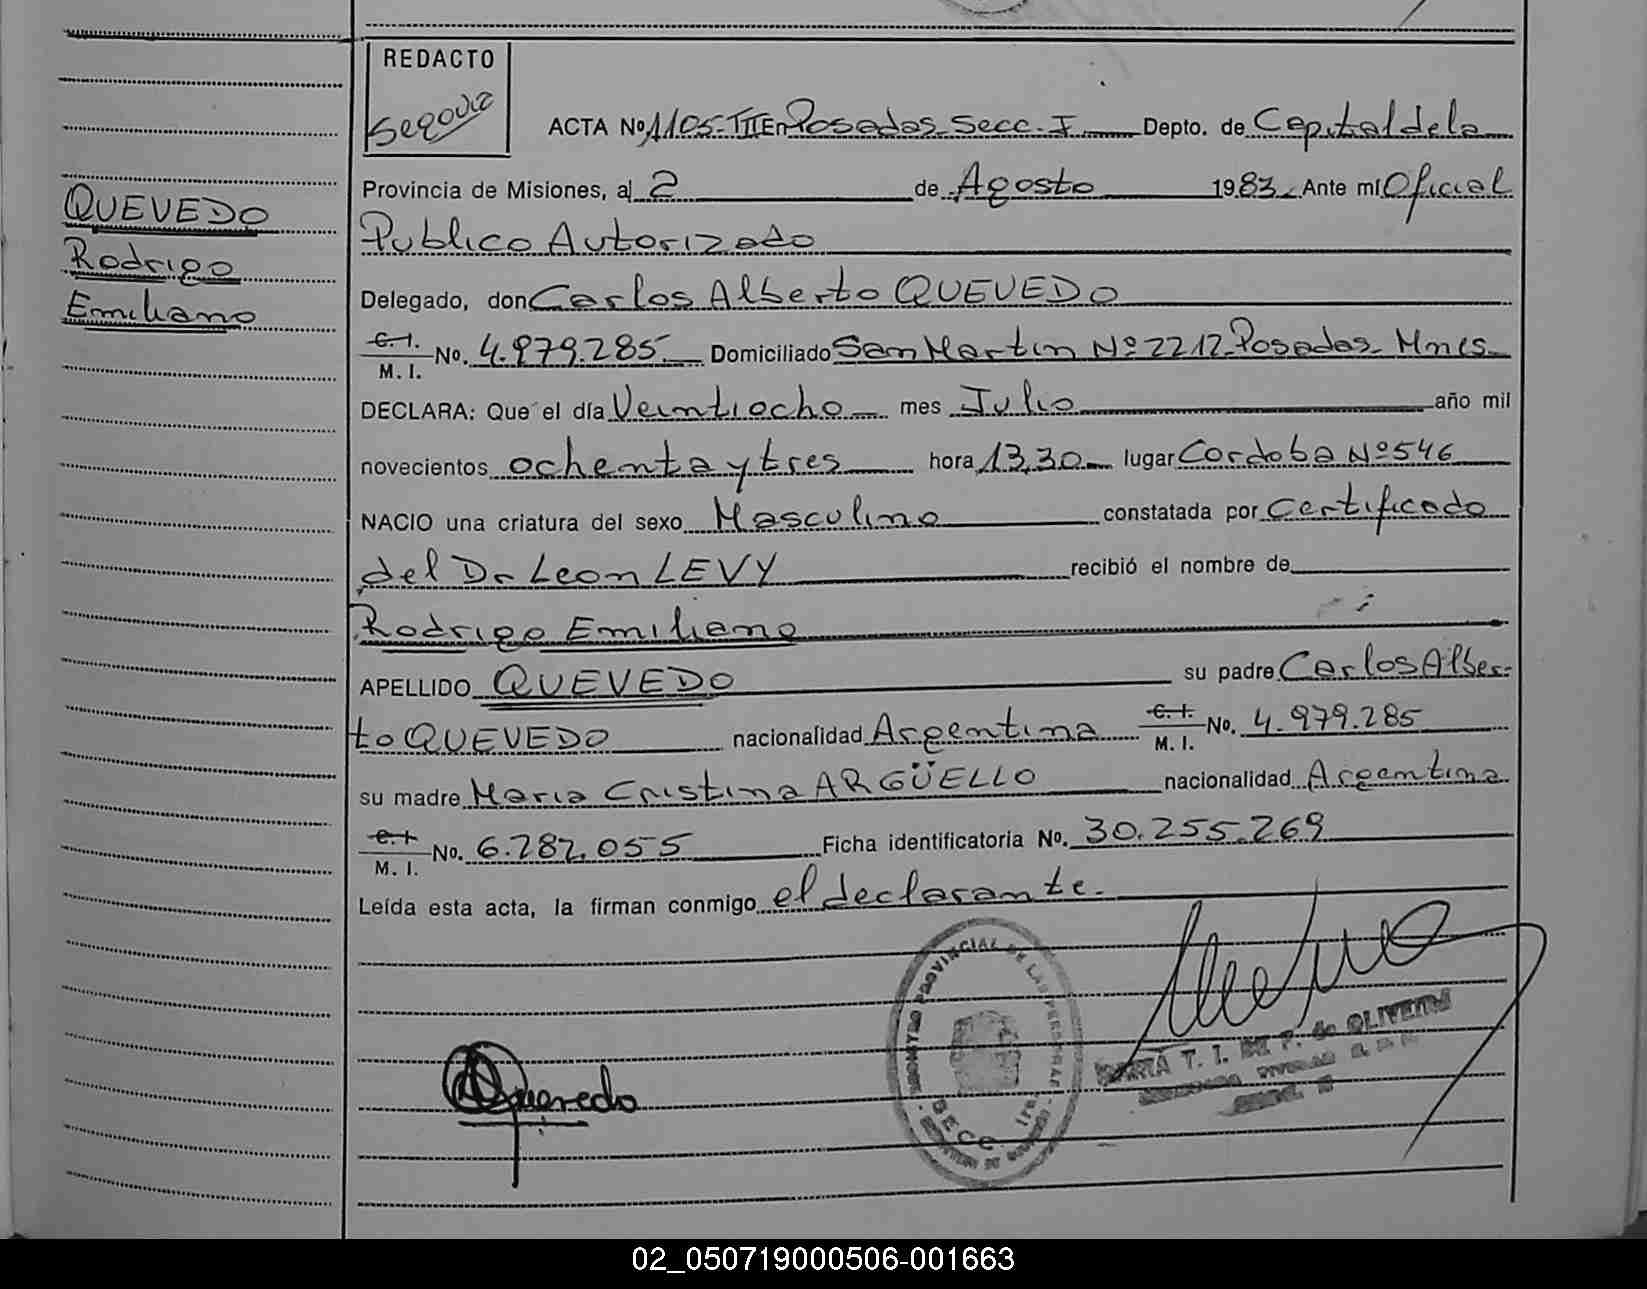 REDACTO
Segovia
ACTA No 1105-III En Posadas Secc. I Depto. de Capital de la
Provincia de Misiones, al 2 de Agosto 1983 Ante mí Oficial
Publico Autorizado
QUEVEDO
Rodrigo
Emiliano
Delegado, don Carlos Alberto QUEVEDO
C.I. M.I. No. 4.979.285 Domiciliado San Martin Nº 2212 Posadas Mnes
DECLARA: Que el día Veintiocho mes Julio año mil
novecientos ochenta y tres hora 13,30 lugar Cordoba Nº 546
NACIO una criatura del sexo Masculino constatada por Certificado
del Dr Leon LEVY recibió el nombre de
Rodrigo Emiliano
APELLIDO QUEVEDO su padre Carlos Alber-
to QUEVEDO nacionalidad Argentina C.I. M.I. No. 4.979.285
su madre Maria Cristina ARGÜELLO nacionalidad Argentina
C.I. M.I. No. 6.282.055 Ficha identificatoria No. 30.255.269
Leída esta acta, la firman conmigo el declarante.
PROVINCIAL DE LAS PERSONAS
SECC. 1ra
T. I. de OLIVEIRA
Quevedo
02_050719000506-001663